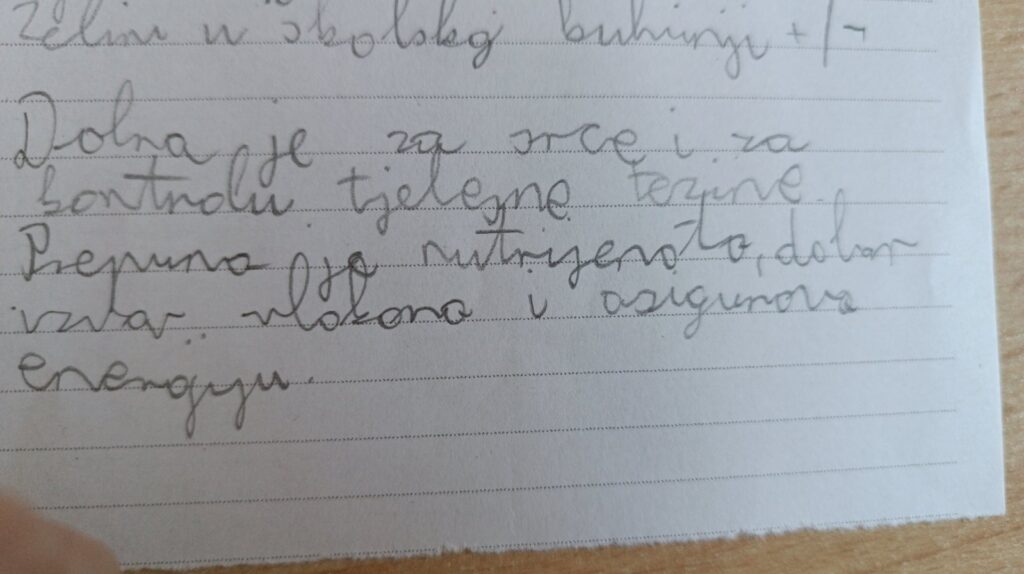 želim u školskoj kuhinji +/-
Dobra je za srce i za
kontrolu tjelesne težine.
Prepuna je nutrijenata, dobar
izvor vlakana i osigurava
energiju.